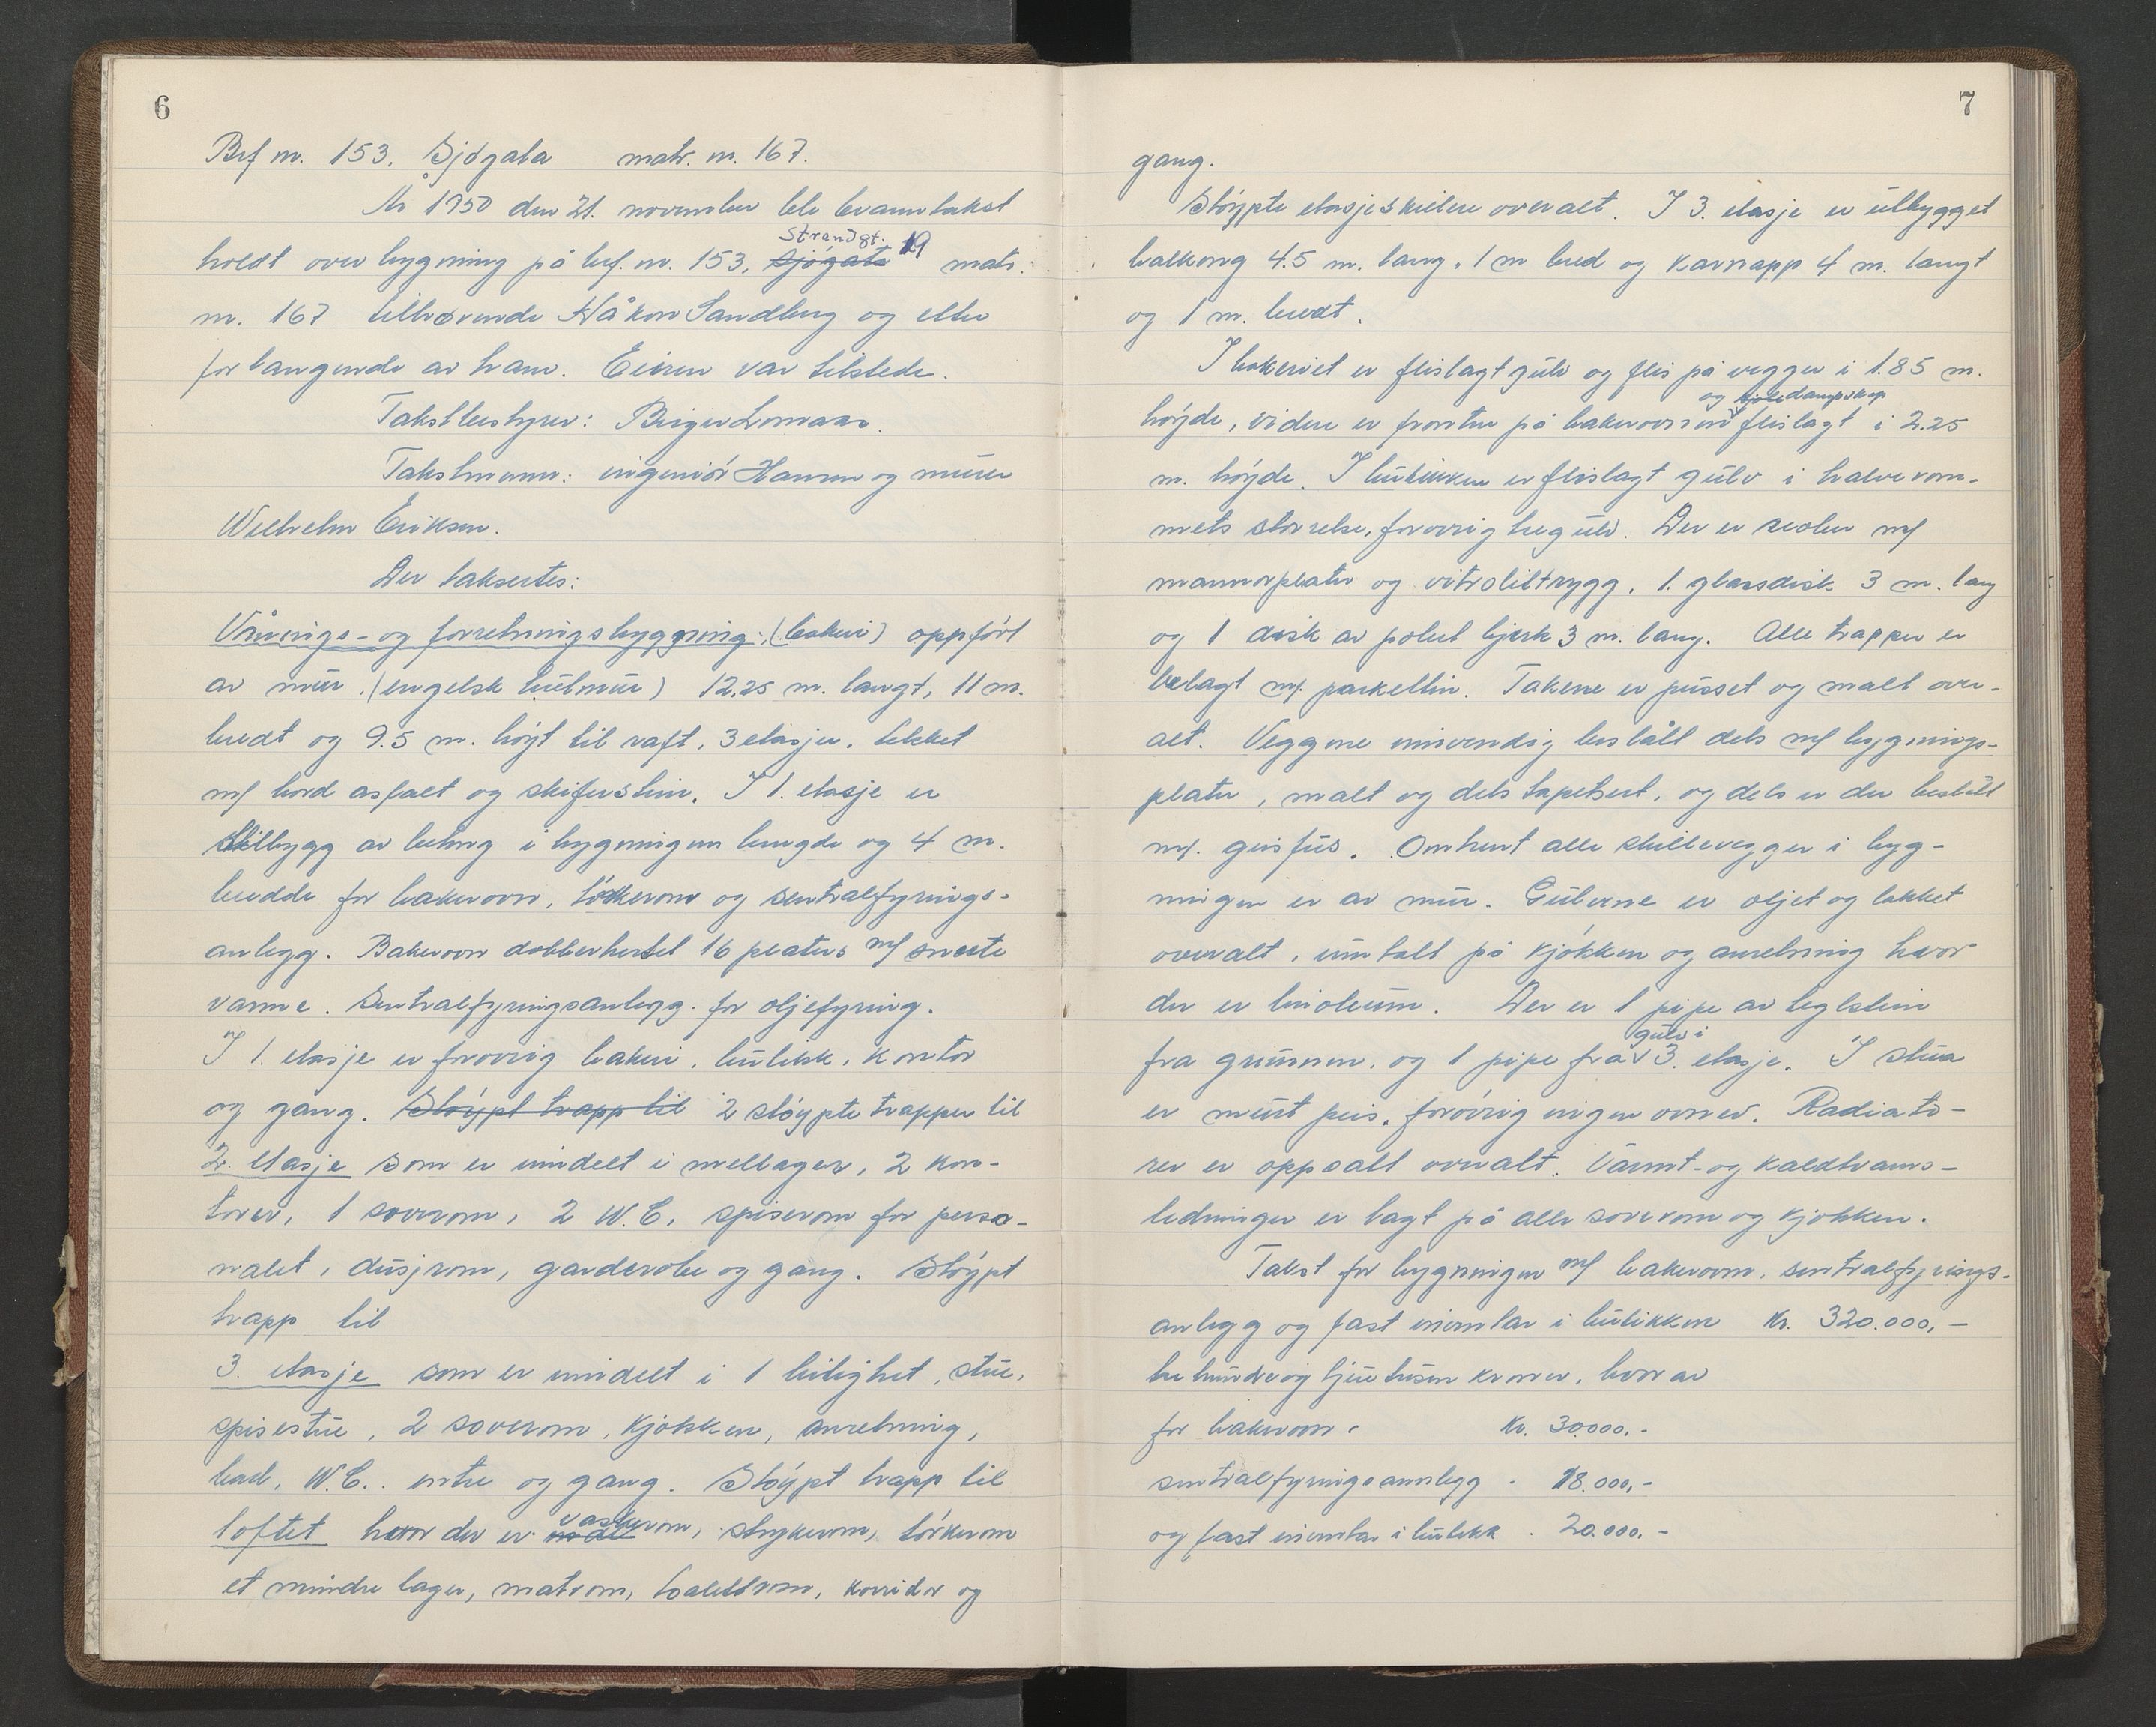 6
Brf nr. 153, Sjøgata matr. nr. 167.
År 1950 den 21. november ble branntakst
holdt over bygning på brf. nr. 153, Sjøgata Strandgt. 19 matr.
nr. 167 tilhørende Håkon Sandberg og etter
forlangende av ham. Eieren var tilstede.
Takstbestyrer: Birger Lomaas.
Takstmenn: ingeniør Hansen og murer
Wilhelm Eriksen.
Der taksertes:
Vånings- og forretningsbygning, (bakeri) oppført
av mur (engelsk hulmur) 12.25 m. langt, 11 m.
bredt og 9.5 m. høyt til raft, 3 etasjer, tekket
m/ bord asfalt og skiferstein. I 1. etasje er
tilbygg av betong i bygningens lengde og 4 m.
bredde for bakerovn, tørkerom og sentralfyrings-
anlegg. Bakerovn dobbenkertel 16 platers m/ sveste
varme. Sentralfyringsanlegg for oljefyring.
I 1. etasje er forøvrig bakeri, butikk, kontor
og gang. Støypt trapp til 2 støypte trapper til
2. etasje som er inndelt i mellager, 2 kon-
torer, 1 soverom, 2 W.C, spiserom for perso-
nalet, dusjrom, garderobe og gang. Støypt
trapp til
3. etasje som er inndelt i 1 leilighet, stue,
spisestue, 2 soverom, kjøkken, anretning,
bad, W.C.. entre og gang. Støypt trapp til
loftet hvor der er vaskerom, strykerom, tørkerom
et mindre lager, matrom, toalettrom, korridor og
7
gang.
Støypte etasjeskiller overalt. I 3. etasje er utbygget
balkong 4.5 m. lang, 1 m bred og karnapp 4 m. langt
og 1 m. bredt.
I bakeriet er flislagt gulv og flis på vegger i 1.85 m.
høyde, videre er fronten på bakerovnen og dampskap flislagt i 2.25
m. høyde. I butikken er flislagt gulv i halve rom-
mets størrelse, forøvrig tregulv. Der er reoler m/
marmorplater og vitrolittrygg, 1. glassdisk 3 m. lang
og 1 disk av polert bjerk 3 m. lang. Alle trapper er
belagt m/. parkettin. Takene er pusset og malt over-
alt. Veggene innvendig bestått dels m/ bygnings-
plater, malt og dels tapetsert, og dels er der bestått
m/. gips fus. Omtrent alle skillevegger i byg-
ningen er av mur. Gulvene er oljet og lakket
overalt, unntatt på kjøkken og anretning hvor
der er linoleum. Der er 1 pipe av teglstein
fra grunnen, og 1 pipe fra gulv i 3. etasje. I stua
er murt peis, forøvrig ingen ovner. Radiato-
rer er oppsatt overalt. Varmt- og kaldtvanns-
ledninger er lagt på alle soverom og kjøkken.
Takst for bygningen m/ bakerovn, sentralfyrings-
anlegg og fast inventar i butikken Kr. 320.000,-
tre hundre og tjue tusen kroner, hvorav
for bakerovn Kr. 30.000.-
sentralfyringsannlegg - 18.000,-
og fast inventar i butikk . 20.000.-